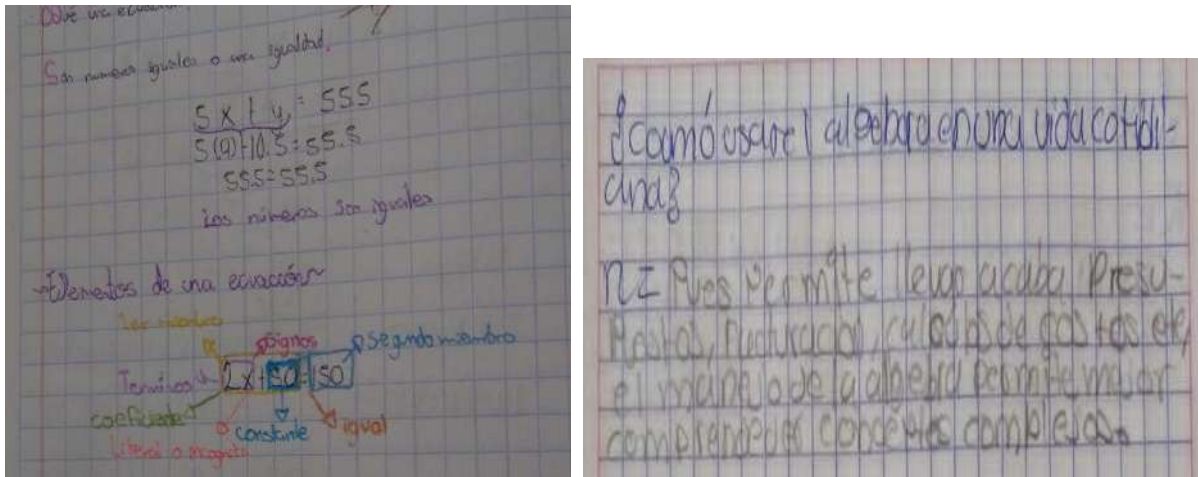 Son numeros iguales o una igualdad.
5 x + y = 55.5
5(9)+10.5=55.5
55.5=55.5
Los números son iguales
~Elementos de una ecuación~
1er miembro
signos
segundo miembro
Terminos
2x+50=150
coeficiente
constante
igual
Literal o incognita
¿comó usar el algebra en una vida cotidi-
ana?
R= Pues permite llevar acabo Presu-
Puestos, facturación, calculos de gastos etc,
el manejo de la algebra permite mejor
comprender conceptos complejos.